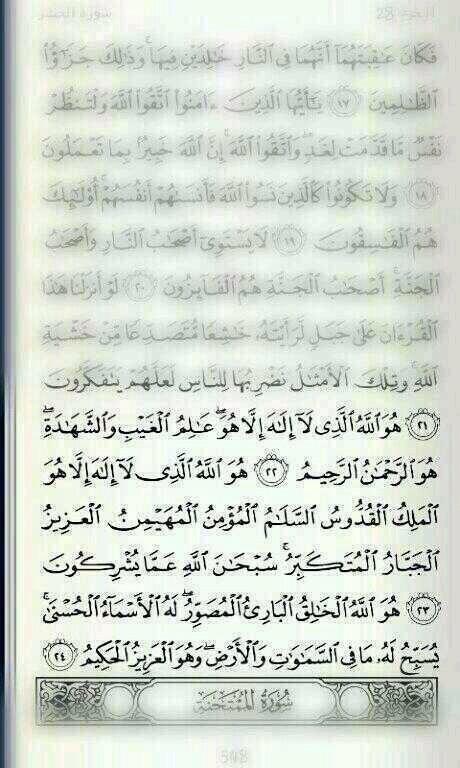 سورة الحشر
الجزء 28
فَكَانَ عَٰقِبَتَهُمَآ أَنَّهُمَا فِي ٱلنَّارِ خَٰلِدَيۡنِ فِيهَاۚ وَذَٰلِكَ جَزَٰٓؤُاْ
ٱلظَّٰلِمِينَ ١٧ يَٰٓأَيُّهَا ٱلَّذِينَ ءَامَنُواْ ٱتَّقُواْ ٱللَّهَ وَلۡتَنظُرۡ
نَفۡسٞ مَّا قَدَّمَتۡ لِغَدٖۖ وَٱتَّقُواْ ٱللَّهَۚ إِنَّ ٱللَّهَ خَبِيرُۢ بِمَا تَعۡمَلُونَ
١٨ وَلَا تَكُونُواْ كَٱلَّذِينَ نَسُواْ ٱللَّهَ فَأَنسَىٰهُمۡ أَنفُسَهُمۡۚ أُوْلَٰٓئِكَ
هُمُ ٱلۡفَٰسِقُونَ ١٩ لَا يَسۡتَوِيٓ أَصۡحَٰبُ ٱلنَّارِ وَأَصۡحَٰبُ
ٱلۡجَنَّةِۚ أَصۡحَٰبُ ٱلۡجَنَّةِ هُمُ ٱلۡفَآئِزُونَ ٢٠ لَوۡ أَنزَلۡنَا هَٰذَا
ٱلۡقُرۡءَانَ عَلَىٰ جَبَلٖ لَّرَأَيۡتَهُۥ خَٰشِعٗا مُّتَصَدِّعٗا مِّنۡ خَشۡيَةِ
ٱللَّهِۚ وَتِلۡكَ ٱلۡأَمۡثَٰلُ نَضۡرِبُهَا لِلنَّاسِ لَعَلَّهُمۡ يَتَفَكَّرُونَ
٢١ هُوَ ٱللَّهُ ٱلَّذِي لَآ إِلَٰهَ إِلَّا هُوَۖ عَٰلِمُ ٱلۡغَيۡبِ وَٱلشَّهَٰدَةِۖ
هُوَ ٱلرَّحۡمَٰنُ ٱلرَّحِيمُ ٢٢ هُوَ ٱللَّهُ ٱلَّذِي لَآ إِلَٰهَ إِلَّا هُوَ
ٱلۡمَلِكُ ٱلۡقُدُّوسُ ٱلسَّلَٰمُ ٱلۡمُؤۡمِنُ ٱلۡمُهَيۡمِنُ ٱلۡعَزِيزُ
ٱلۡجَبَّارُ ٱلۡمُتَكَبِّرُۚ سُبۡحَٰنَ ٱللَّهِ عَمَّا يُشۡرِكُونَ
٢٣ هُوَ ٱللَّهُ ٱلۡخَٰلِقُ ٱلۡبَارِئُ ٱلۡمُصَوِّرُۖ لَهُ ٱلۡأَسۡمَآءُ ٱلۡحُسۡنَىٰۚ
يُسَبِّحُ لَهُۥ مَا فِي ٱلسَّمَٰوَٰتِ وَٱلۡأَرۡضِۖ وَهُوَ ٱلۡعَزِيزُ ٱلۡحَكِيمُ ٢٤
سُورَةُ المُمۡتَحنَةِ
548